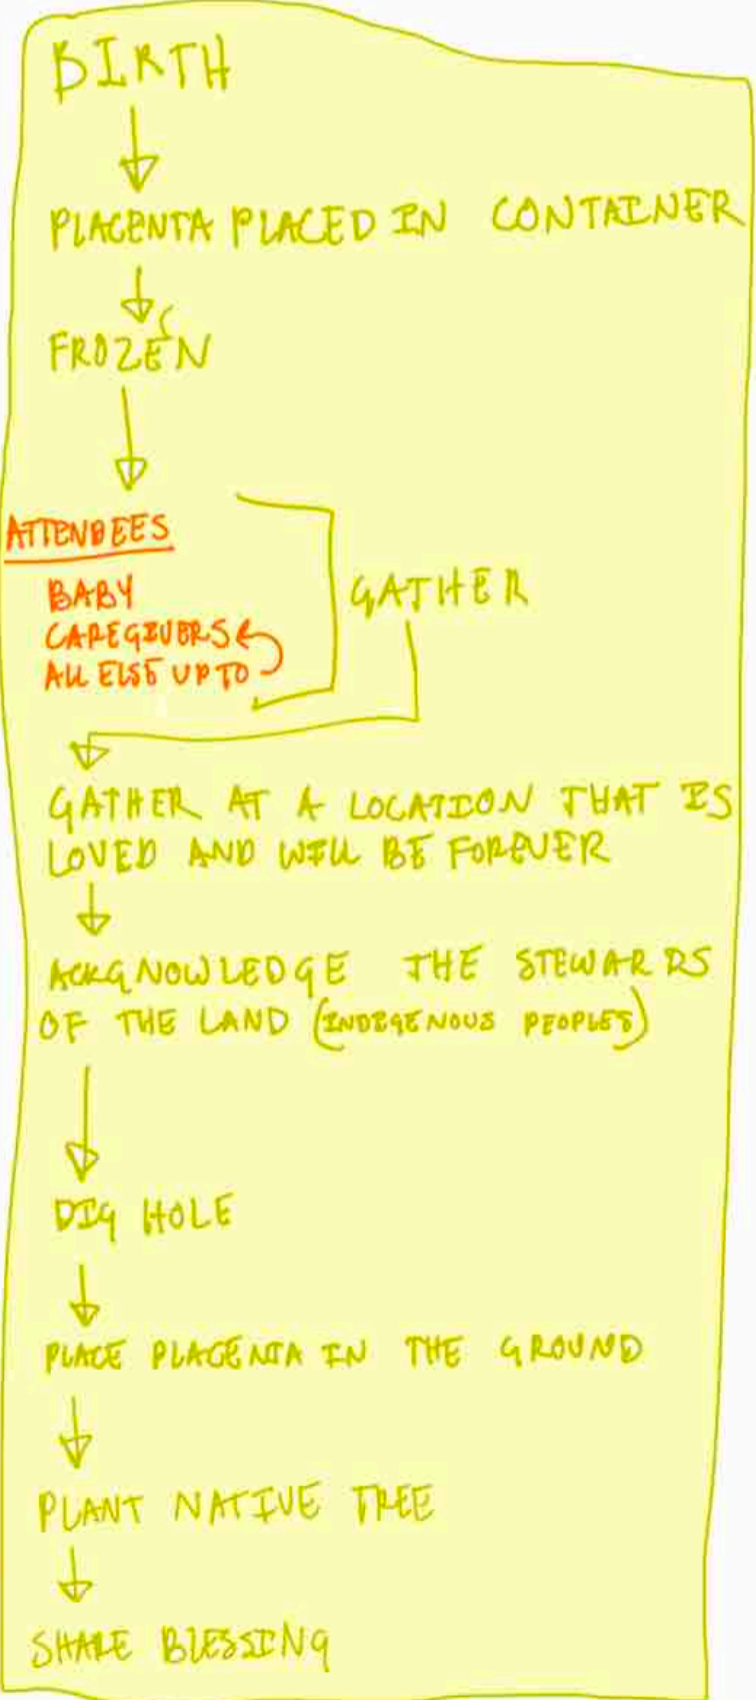 BIRTH
PLACENTA PLACED IN CONTAINER
FROZEN
ATTENDEES
BABY
CAREGIVERS
ALL ELSE UP TO
GATHER
GATHER AT A LOCATION THAT IS
LOVED AND WILL BE FOREVER
ACKGNOWLEDGE THE STEWARDS
OF THE LAND (INDIGENOUS PEOPLES)
DIG HOLE
PLACE PLACENTA IN THE GROUND
PLANT NATIVE TREE
SHARE BLESSING